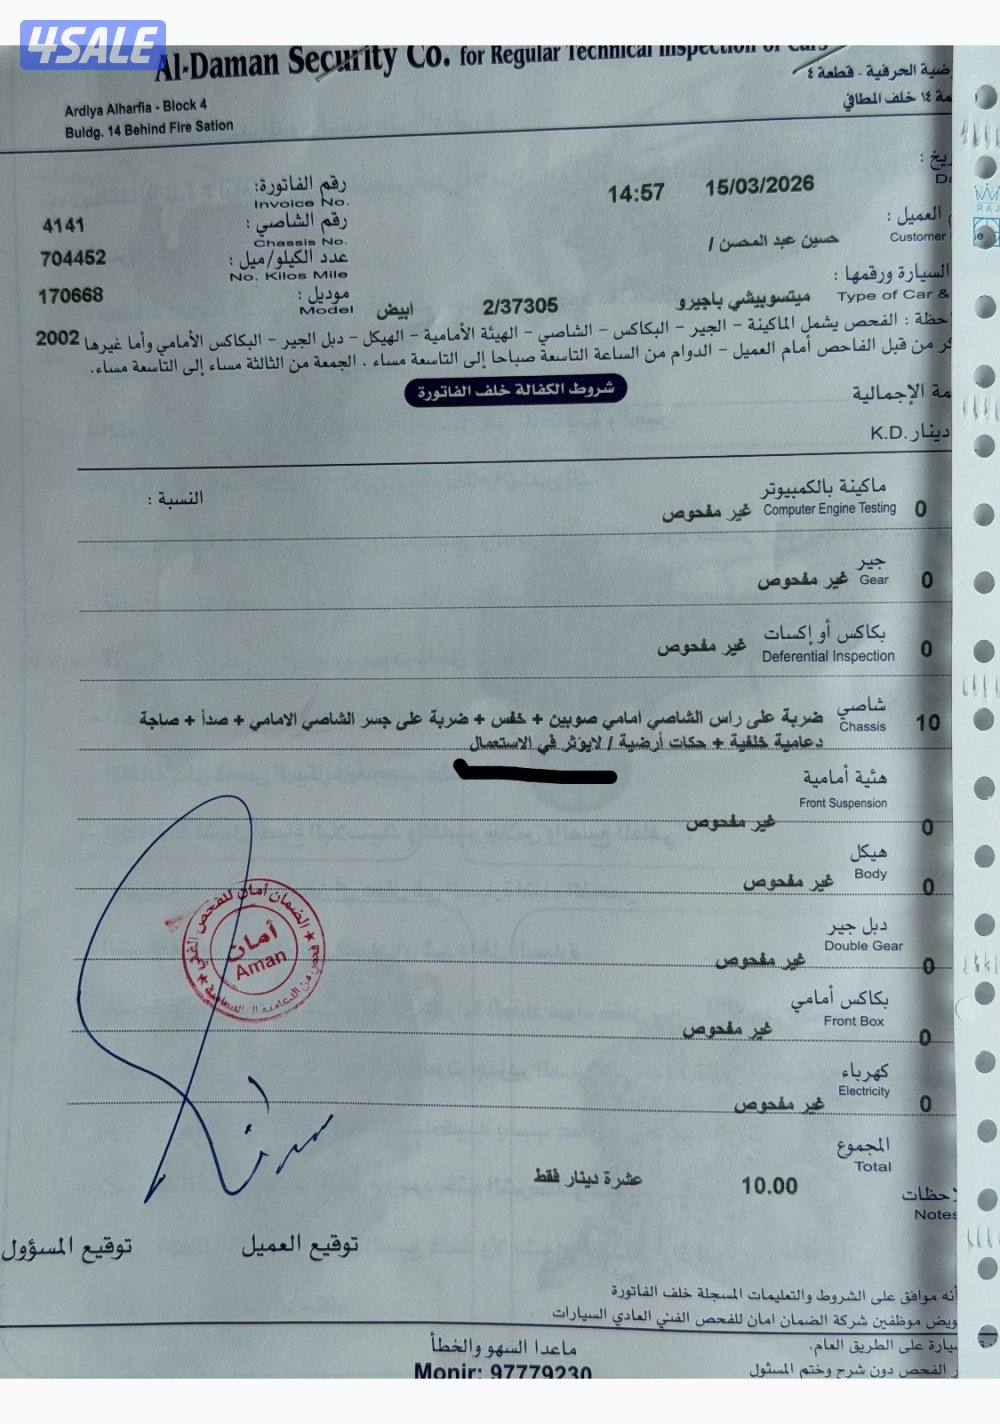 4SALE
Al-Daman Security Co. for Regular Technical Inspection of Cars
الحرفية - قطعة ٤
١٤ خلف المطافي
Ardiya Alharfia - Block 4
Buldg. 14 Behind Fire Sation
رقم الفاتورة:
Invoice No.
14:57 15/03/2026
4141
رقم الشاصي :
Chassis No.
حسين عبد المحسن /
العميل :
Customer
704452
عدد الكيلو/ميل :
No. Kilos Mile
السيارة ورقمها :
Type of Car &
170668
موديل :
Model
ابيض
2/37305
ميتسوبيشي باجيرو
2002
الفحص يشمل الماكينة - الجير - البكاكس - الشاصي - الهيئة الأمامية - الهيكل - دبل الجير - البكاكس الأمامي وأما غيرها
من قبل الفاحص أمام العميل - الدوام من الساعة التاسعة صباحا إلى التاسعة مساء . الجمعة من الثالثة مساء إلى التاسعة مساء.
شروط الكفالة خلف الفاتورة
الإجمالية
دينار K.D.
النسبة :
ماكينة بالكمبيوتر
Computer Engine Testing
غير مفحوص
0
جير
Gear
غير مفحوص
0
بكاكس أو إكسات
Deferential Inspection
غير مفحوص
0
شاصي
Chassis
10
ضربة على راس الشاصي امامي صوبين + خفس + ضربة على جسر الشاصي الامامي + صدأ + صاجة
دعامية خلفية + حكات أرضية / لايؤثر في الاستعمال
هئية أمامية
Front Suspension
غير مفحوص
0
هيكل
Body
غير مفحوص
0
دبل جير
Double Gear
غير مفحوص
0
بكاكس أمامي
Front Box
غير مفحوص
0
كهرباء
Electricity
غير مفحوص
0
الضمان أمان للفحص الفني
أمان
Aman
المجموع
Total
10.00
عشرة دينار فقط
Notes
توقيع العميل
توقيع المسؤول
موافق على الشروط والتعليمات المسجلة خلف الفاتورة
موظفين شركة الضمان امان للفحص الفني العادي السيارات
على الطريق العام.
الفحص دون شرح وختم المسئول
ماعدا السهو والخطأ
Monir: 97779230